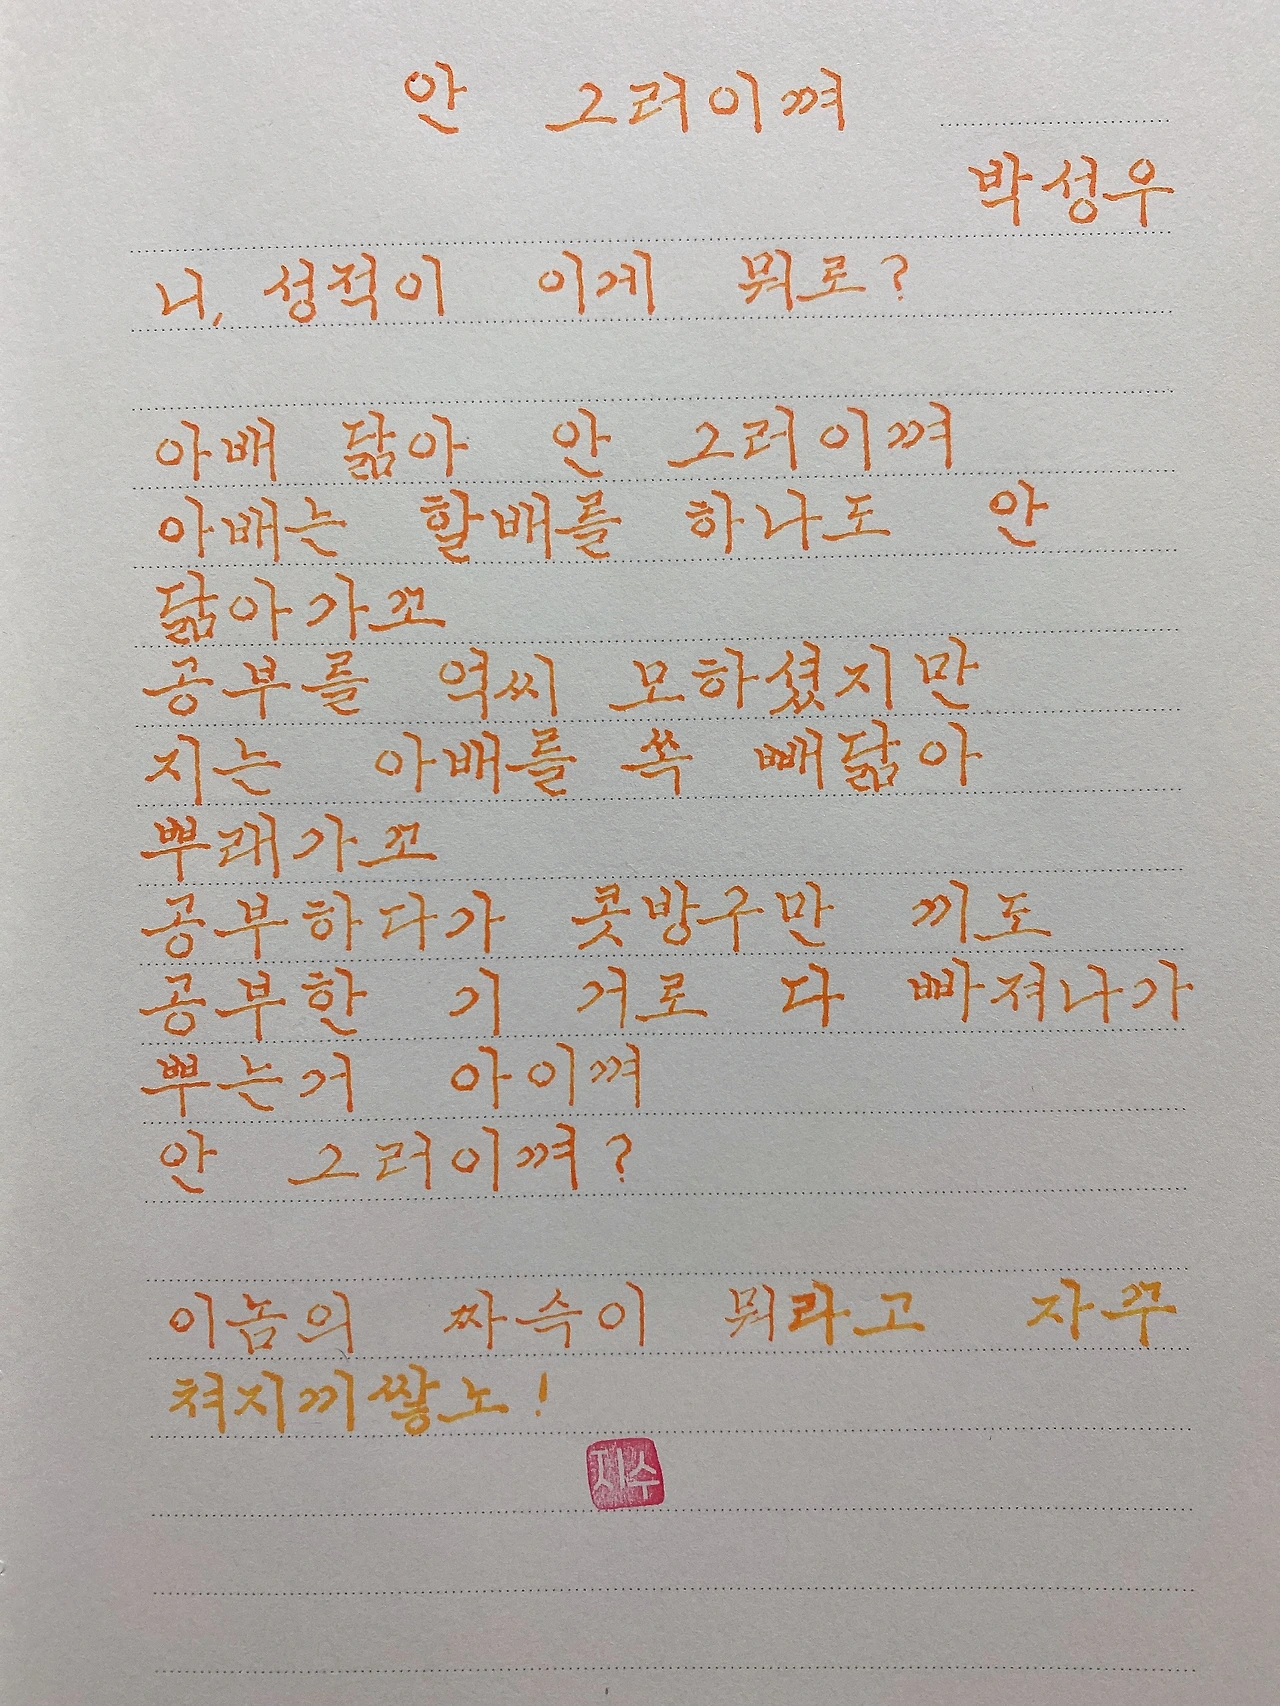 안 그러이껴
박성우
니, 성적이 이게 뭐로?
아배 닮아 안 그러이껴
아배는 할배를 하나도 안
닮아가꼬
공부를 역씨 모하셨지만
지는 아배를 쏙 빼닮아
뿌래가꼬
공부하다가 콧방구만 끼도
공부한 기 거로 다 빠져나가
뿌는거 아이껴
안 그러이껴?
이놈의 짜슥이 뭐라고 자꾸
쳐지끼쌓노!
지수